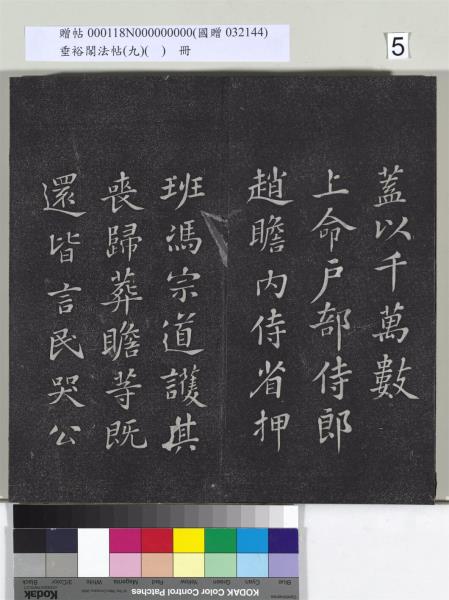 贈帖 000118N000000000(國贈 032144)
垂裕閣法帖(九)( ) 冊
5
蓋以千萬數
上命戶部侍郎
趙瞻內侍省押
班馮宗道護其
喪歸葬瞻等既
還皆言民哭公
Blue Cyan Green Yellow Red Magenta White 3/Color Black
Kodak
KODAK Color Control Patches